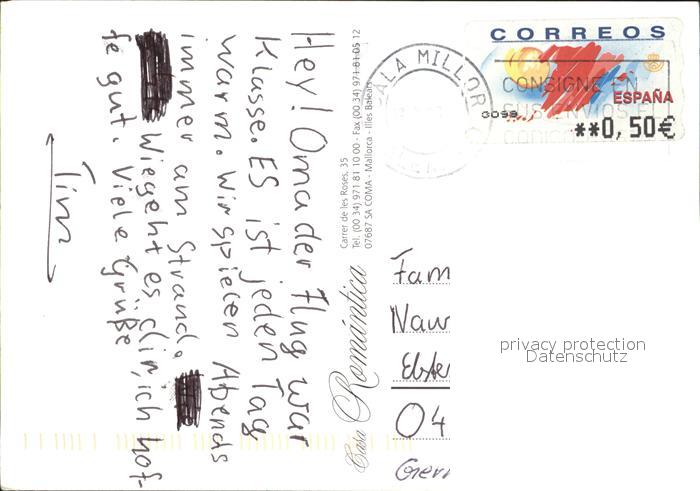 Hey! Oma der Flug war
Klasse. ES ist jeden Tag
warm. Wir spielen Abends
immer am Strand.
Wiegeht es dir, ich hof-
fe gut. Viele Grüße
Tim
Casa Romántica
Carrer de les Roses, 35
Tel. (00 34) 971 81 10 00 - Fax (00 34) 971 81 05 12
07687 SA COMA - Mallorca - Illes Balears
CALA MILLOR
CORREOS
ESPAÑA
0099
**0,50€
CONSIGNE EN
SUS ENVIOS EL
Fam
Naw
04
privacy protection
Datenschutz